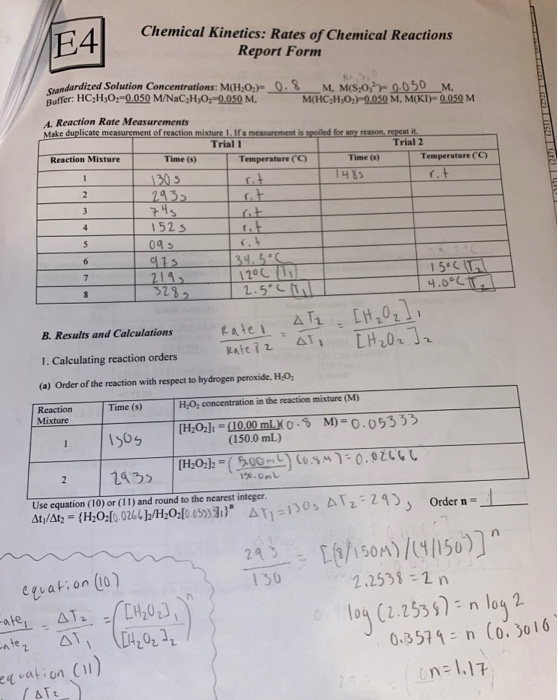 E4
Chemical Kinetics: Rates of Chemical Reactions
Report Form
Standardized Solution Concentrations: M(H₂O₂)= 0.8 M, M(S₂O₃²⁻)= 0.050 M,
Buffer: HC₂H₃O₂=0.050 M/NaC₂H₃O₂=0.050 M, M(HC₂H₃O₂)=0.050 M, M(KI)= 0.050 M
A. Reaction Rate Measurements
Make duplicate measurement of reaction mixture 1. If a measurement is spoiled for any reason, repeat it.
Trial 1 Trial 2
Reaction Mixture Time (s) Temperature (°C) Time (s) Temperature (°C)
1 130s r.t 148s r.t
2 293s r.t
3 74s r.t
4 152s r.t
5 09s r.t
6 97s 34.5°C
7 219s 12°C (T₁) 15°C (T₂)
8 328s 2.5°C (T₁) 4.0°C (T₂)
B. Results and Calculations
Rate 1 / Rate 2 = ΔT₂ / ΔT₁ = [H₂O₂]₁ / [H₂O₂]₂
1. Calculating reaction orders
(a) Order of the reaction with respect to hydrogen peroxide, H₂O₂
Reaction Mixture Time (s) H₂O₂ concentration in the reaction mixture (M)
1 130s [H₂O₂]₁ = (10.00 mL)(0.8 M) = 0.05333
(150.0 mL)
2 293s [H₂O₂]₂ = (5.00mL / 150.0mL) (0.8M) = 0.02666
Use equation (10) or (11) and round to the nearest integer.
Δt₁/Δt₂ = {H₂O₂[0.0266]₂/H₂O₂[0.0533]₁}ⁿ ΔT₁=130s ΔT₂=293s Order n = 1
293 / 130 = [(8/150M)/(4/150)]ⁿ
equation (10)
2.2538 = 2 n
Rate₁ / Rate₂ = ΔT₂ / ΔT₁ = ([H₂O₂]₁ / [H₂O₂]₂)ⁿ
log (2.2538) = n log 2
0.3579 = n (0.3010
equation (11)
n=1.17
(ΔT₂)